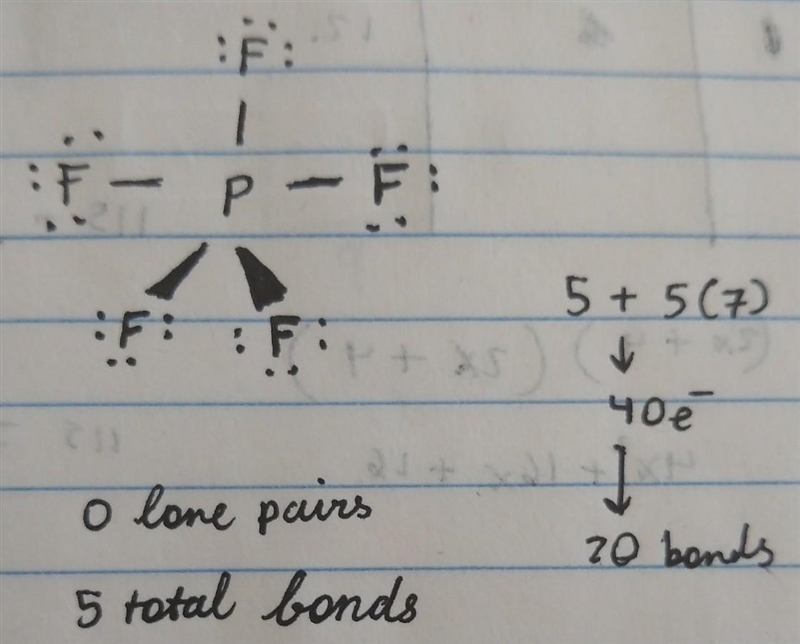 :F:
:F — P — F:
:F: :F:
5 + 5(7)
↓
40e⁻
↓
20 bonds
0 lone pairs
5 total bonds